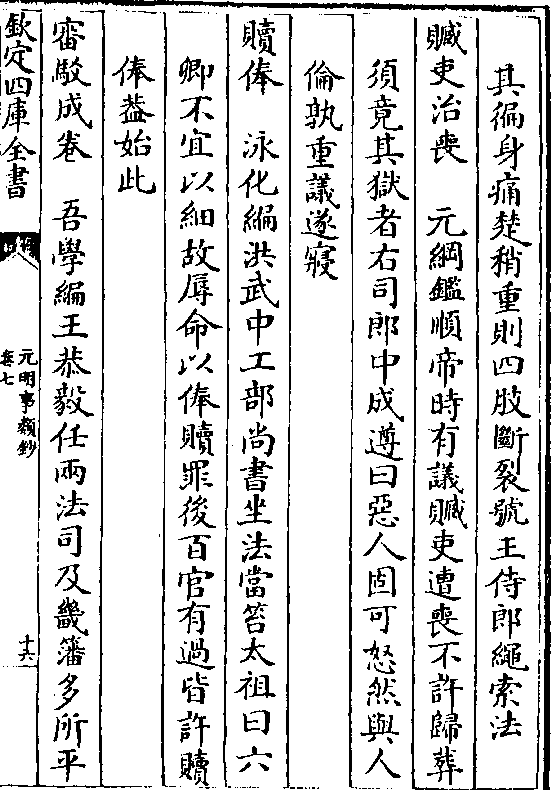 其徧身痛楚稍重則四肢斷裂號王侍郎繩索法
贓吏治喪　元綱鑑順帝時有議贓吏遭喪不許歸葬
須竟其獄者右司郎中成遵曰惡人固可怒然與人
倫孰重議遂寢
贖俸　泳化編洪武中工部尚書坐法當笞太祖曰六
卿不宜以細故辱命以俸贖罪後百官有過皆許贖
俸葢始此
審駁成卷　吾學編王恭毅任兩法司及畿藩多所平
欽定四庫全書
元明事類鈔
卷七
十六